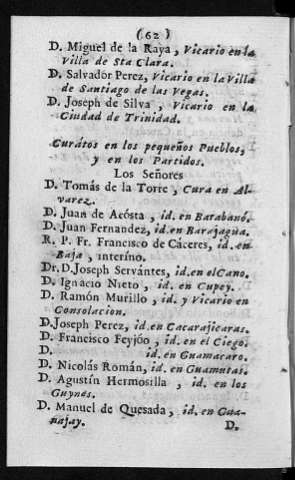 (62)
D. Miguel de la Raya, Vicario en la
Villa de Sta Clara.
D. Salvador Perez, Vicario en la Villa
de Santiago de las Vegas.
D. Joseph de Silva, Vicario en la
Ciudad de Trinidad.
Curátos en los pequeños Pueblos,
y en los Partidos.
Los Señores
D. Tomás de la Torre, Cura en Al-
varez.
D. Juan de Acósta, id. en Barabanó.
D. Juan Fernandez, id. en Barajagua.
R. P. Fr. Francisco de Cáceres, id. en
Baja, interíno.
Dr. D. Joseph Servántes, id. en el Cano.
D. Ignacio Nieto, id. en Cupey.
D. Ramón Murillo, id. y Vicario en
Consolacion.
D. Joseph Perez, id. en Cacarajicaras.
D. Francisco Feyjóo, id. en el Ciego.
D. id. en Guamacaro.
D. Nicolás Román, id. en Guamutas.
D. Agustín Hermosilla, id. en los
Guynes.
D. Manuel de Quesada, id. en Gua-
najay.
D.